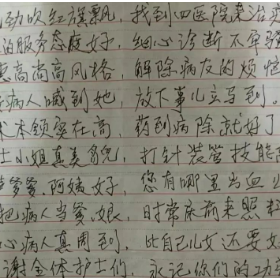 劲吹红旗飘，找到四医院来治
的服务态度好，细心诊断不
高尚高风格，解除病友的烦恼
病人喊到她，放下事儿立马到
术本领实在高，药到病除就好了
士小姐真美貌，打针装管技能
爹爹、阿姨好，您有哪里出血
把病人当爹娘，时常床前来照
心病人真周到，比自己儿女还要
谢全体护士们，永记你们的